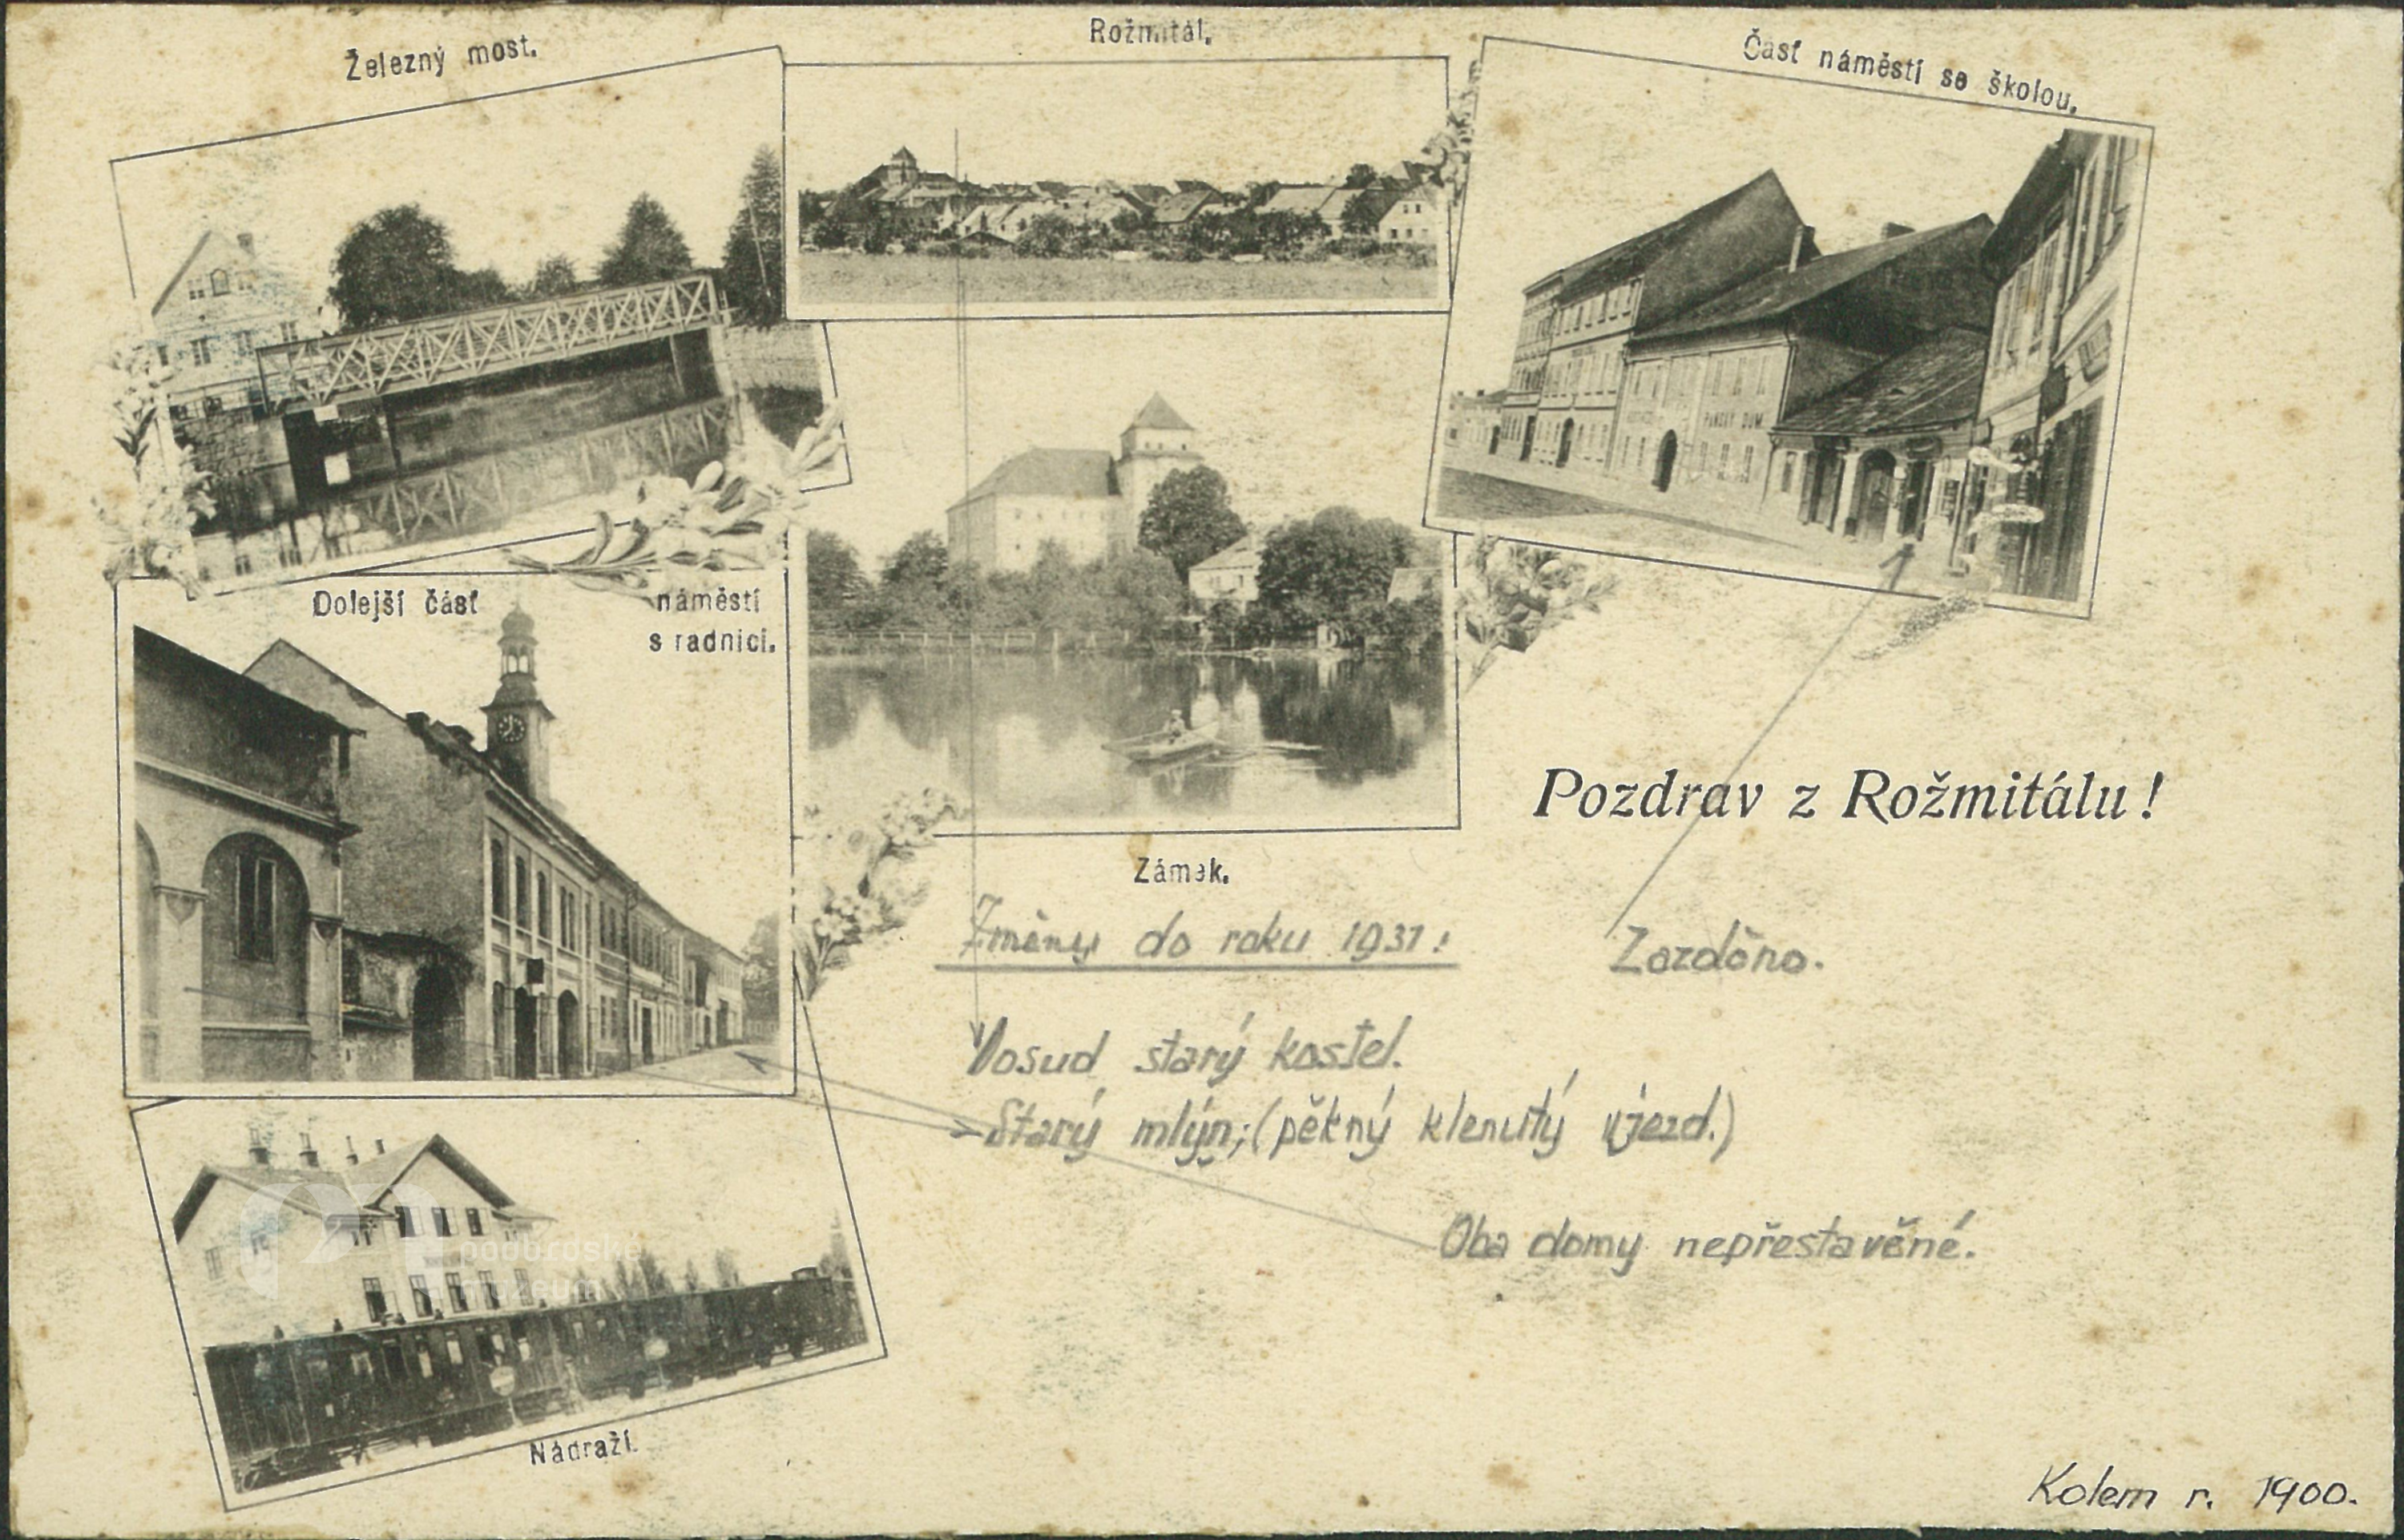 Železný most.
Rožmitál.
Časť náměstí se školou.
PANSKÝ DUM
Dolejší část náměstí
s radnicí.
Zámek.
Pozdrav z Rožmitálu!
Změny do roku 1931!
Zazděno.
Dosud starý kostel.
Starý mlýn; (pěkný klenutý vjezd.)
Oba domy nepřestavěné.
podbrdské
muzeum
Nádraží.
Kolem r. 1900.